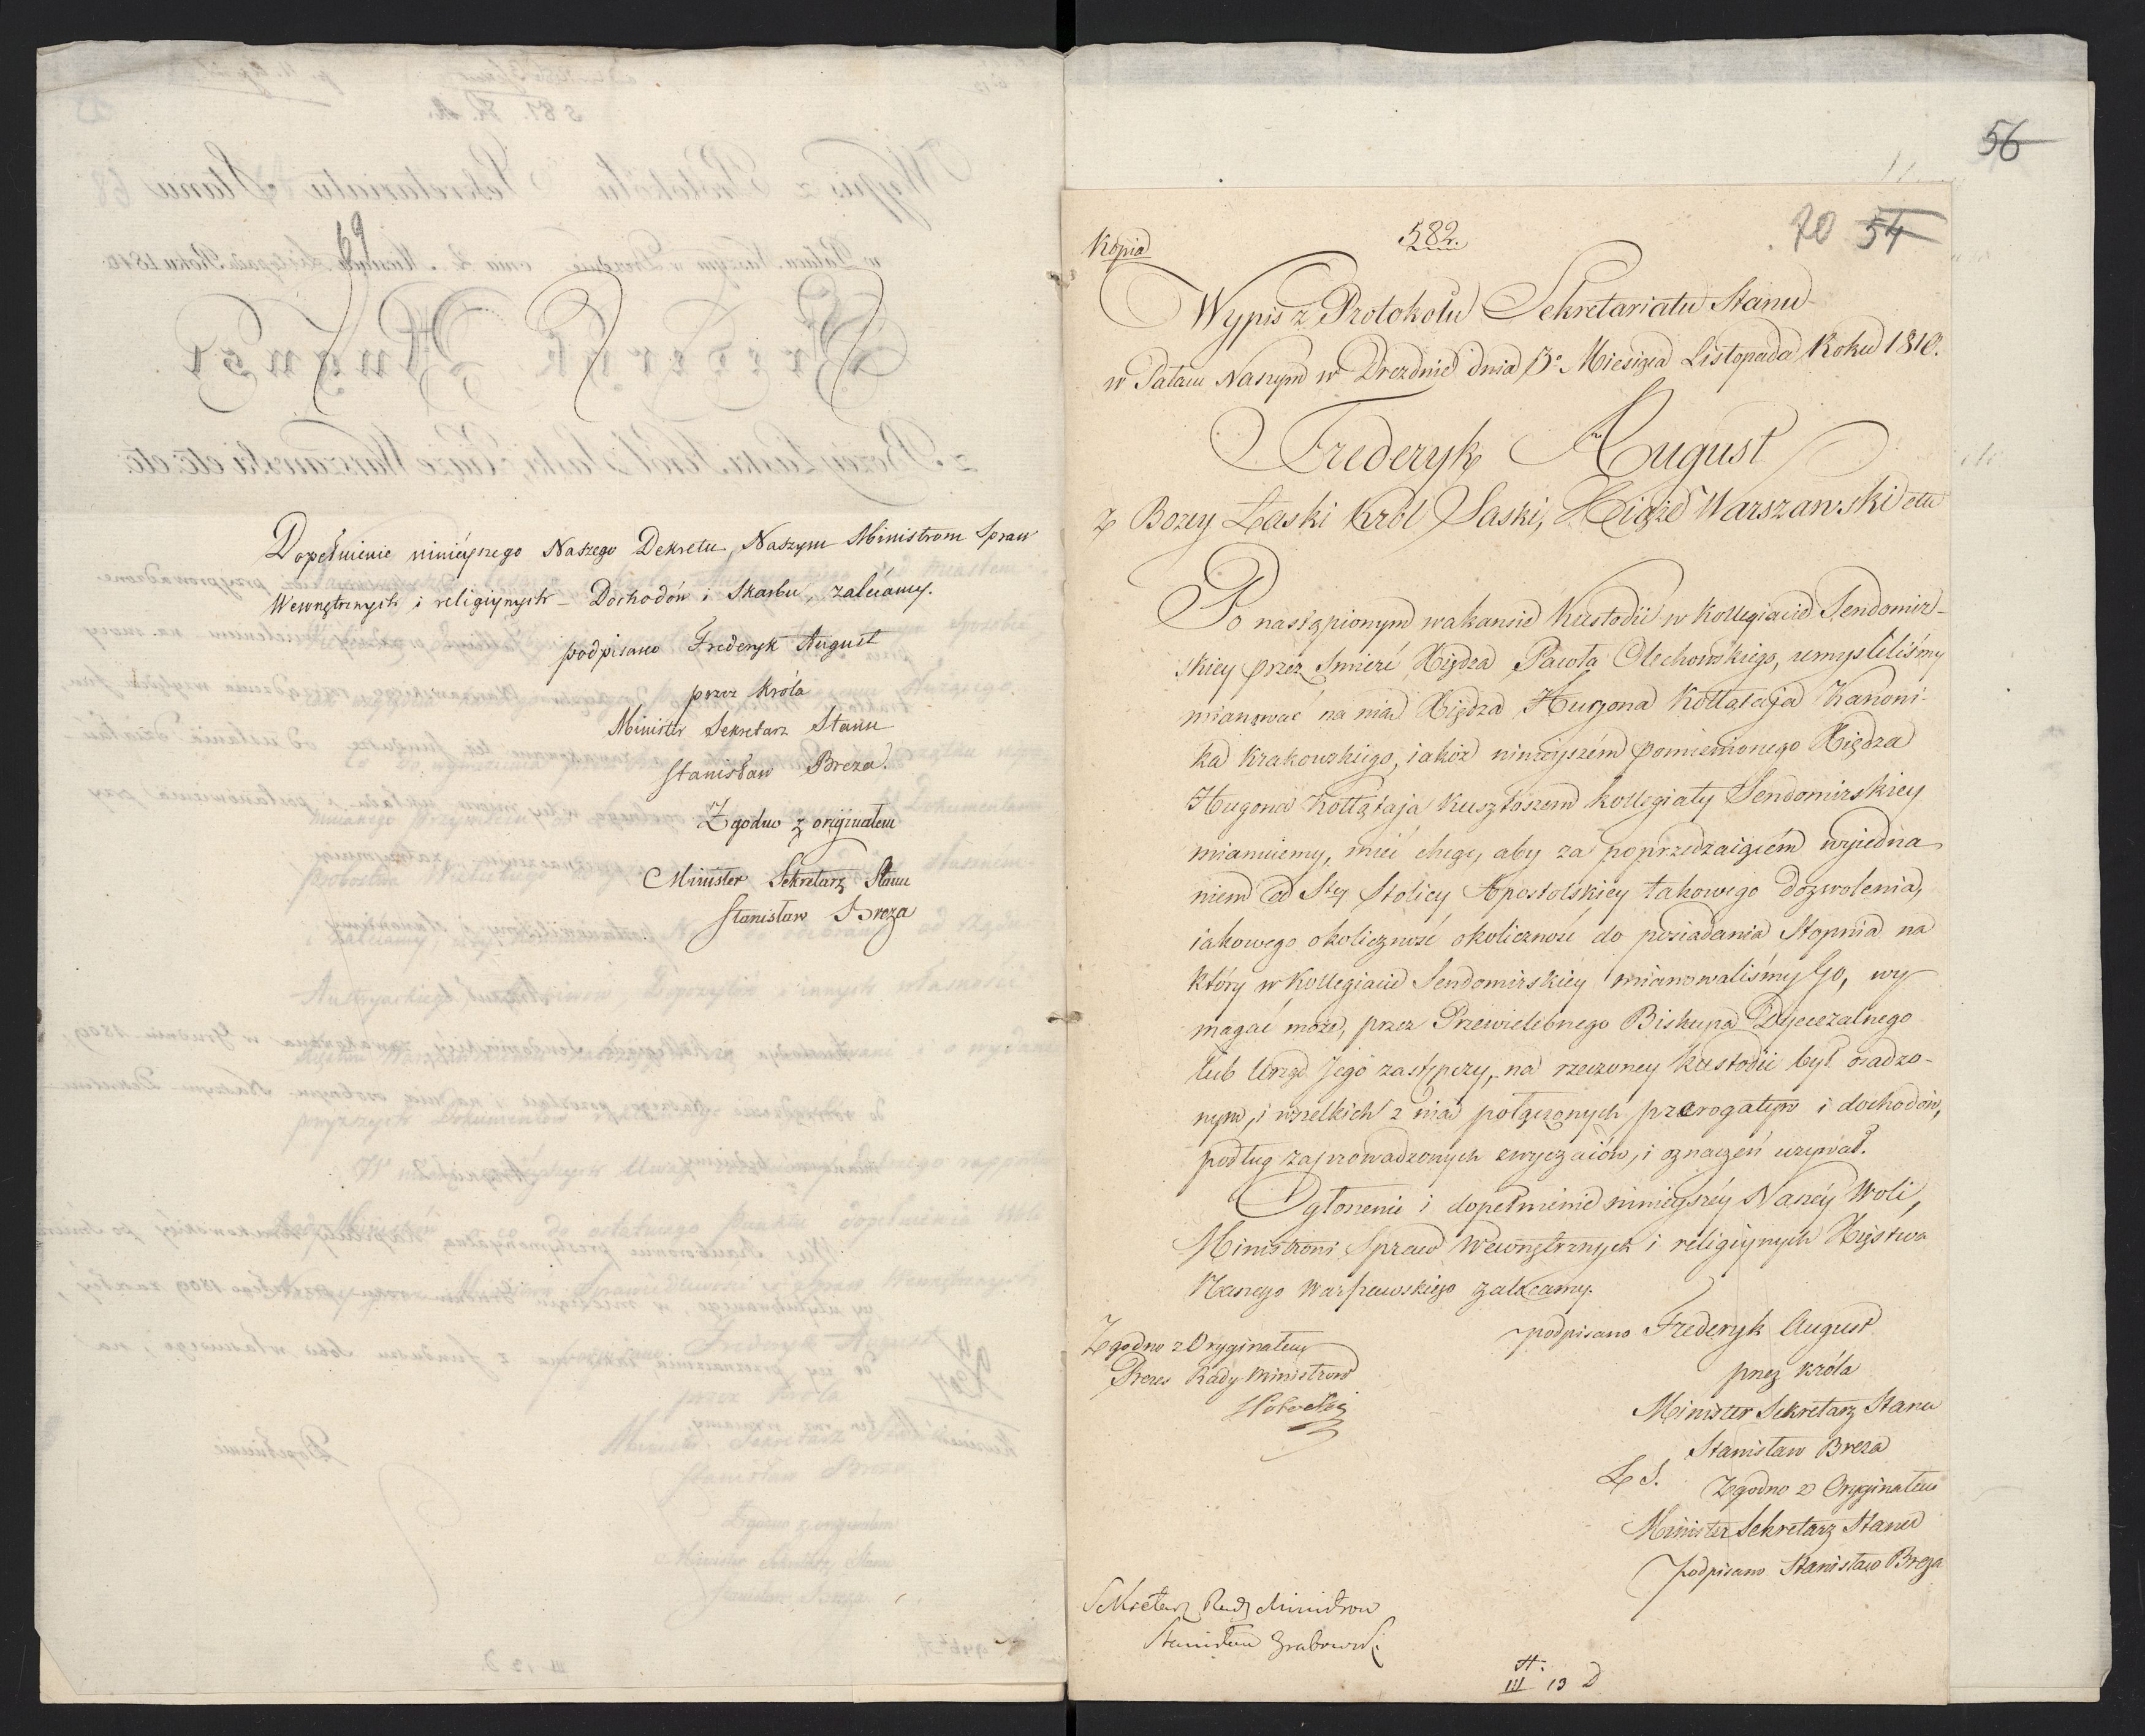 69
Dopełnienie ninieyszego Naszego Dekretu, Naszym Ministrom Spraw
Wewnętrznych i religiynych – Dochodów i Skarbu, zalécamy.
podpisano Frederyk August
przez Króla
Minister Sekretarz Stanu
Stanisław Breza.
Zgodno z oryginałem
Minister Sekretarz Stanu
Stanisław Breza
56
Kopia
582.
70 54
Wypis z Protokołu Sekretariatu Stanu
w Pałacu Naszym w Dreznie dnia 3º Miesiąca Listopada Roku 1810.
Frederyk August
z Bozey Łaski Król Saski, Xiąże Warszawski etc
Po nastąpionym wakansie Kustodii w Kollegiacie Sendomir-
skiey przez Smierć Xiędza Pawła Olechowskiego, umysliliśmy
mianować na nią Xiędza Hugona Kołłątaja Kanoni-
ka Krakowskiego, iakoż ninieyszém pomienionego Xiędza
Hugona Kołłątaja Kusztoszem Kollegiaty Sendomirskiey
mianuiemy, mieć chcąc, aby za poprzedzaiącém wyiedna
niem od Stey Stolicy Apostolskiey takowego dozwolenia,
iakowego okoliczność okoliczność do posiadania Stopnia na
który w Kollegiacie Sendomirskiey mianowaliśmy Go, wy
magać może, przez Przewielebnego Biskupa Dyecezalnego
lub Urząd Jego zastępczy, na rzeczoney Kustodii był osadzo-
nym, i wszelkich z nią połączonych prerogatyw i dochodów,
podług zaprowadzonych zwyczaiów, i oznaczeń używał.
Ogłoszenie i dopełnienie ninieyszéy Naszéy Woli,
Ministrowi Spraw Wewnętrznych i religiynych Xięstwa
Naszego Warszawskiego zalecamy.
Zgodno z Oryginałem
Prezes Rady Ministrow
podpisano Frederyk August
przez króla
Minister Sekretarz Stanu
Stanisław Breza
L. S.
Zgodno z Oryginałem
Minister Sekretarz Stanu
podpisano Stanisław Breza
Sekretarz Rady Ministrow
Stanisław Grabowski
III 13 D